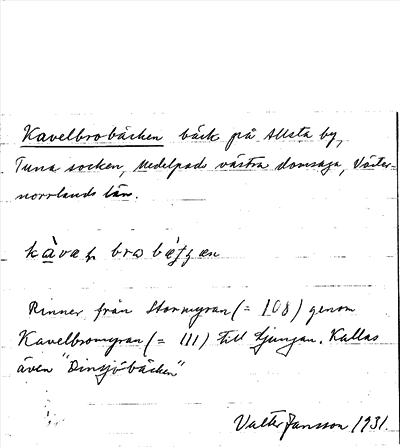 Kavelbrobäcken bäck på Allsta by,
Tuna socken, Medelpads västra domsaga, Väster-
norrlands län.
Rinner från Stormyran (= 108) genom
Kavelbromyran (= 111) till Ljungan. Kallas
även "Dinsjöbäcken"
Valter Jansson 1931.